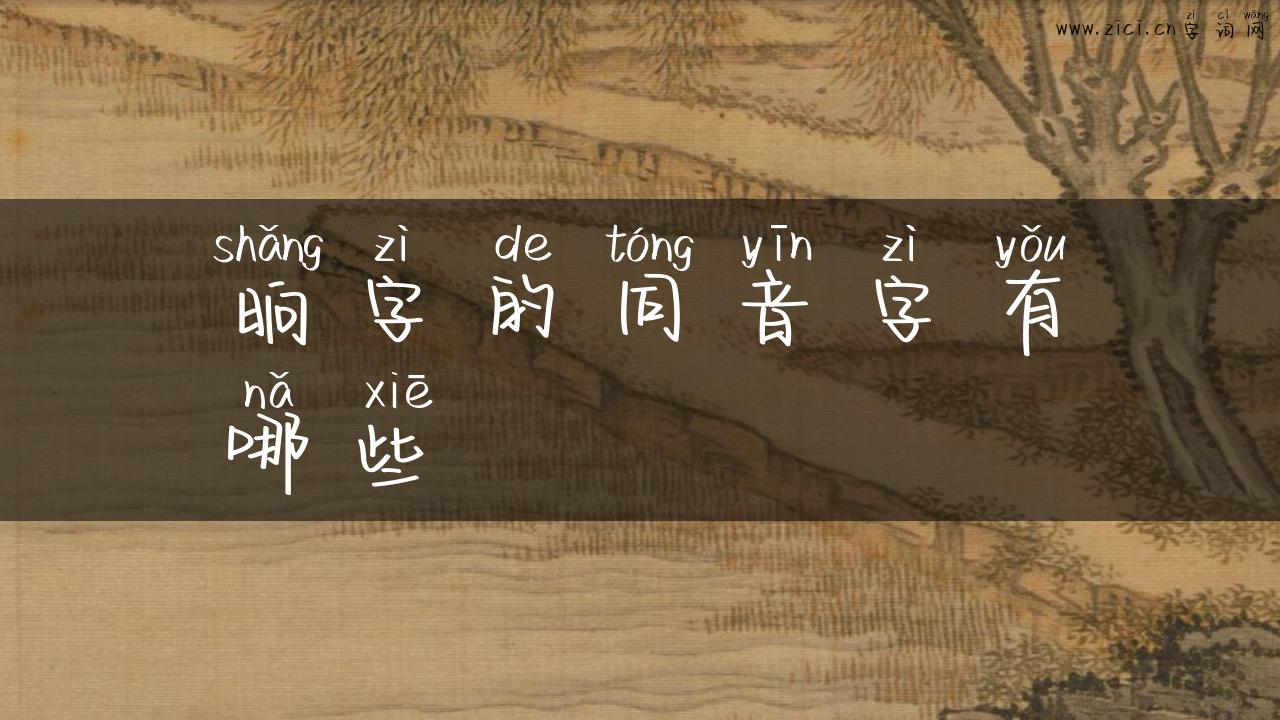 zì cí wǎng
www.zici.cn字词网
shǎng zì de tóng yīn zì yǒu
晌字的同音字有
nǎ xiē
哪些